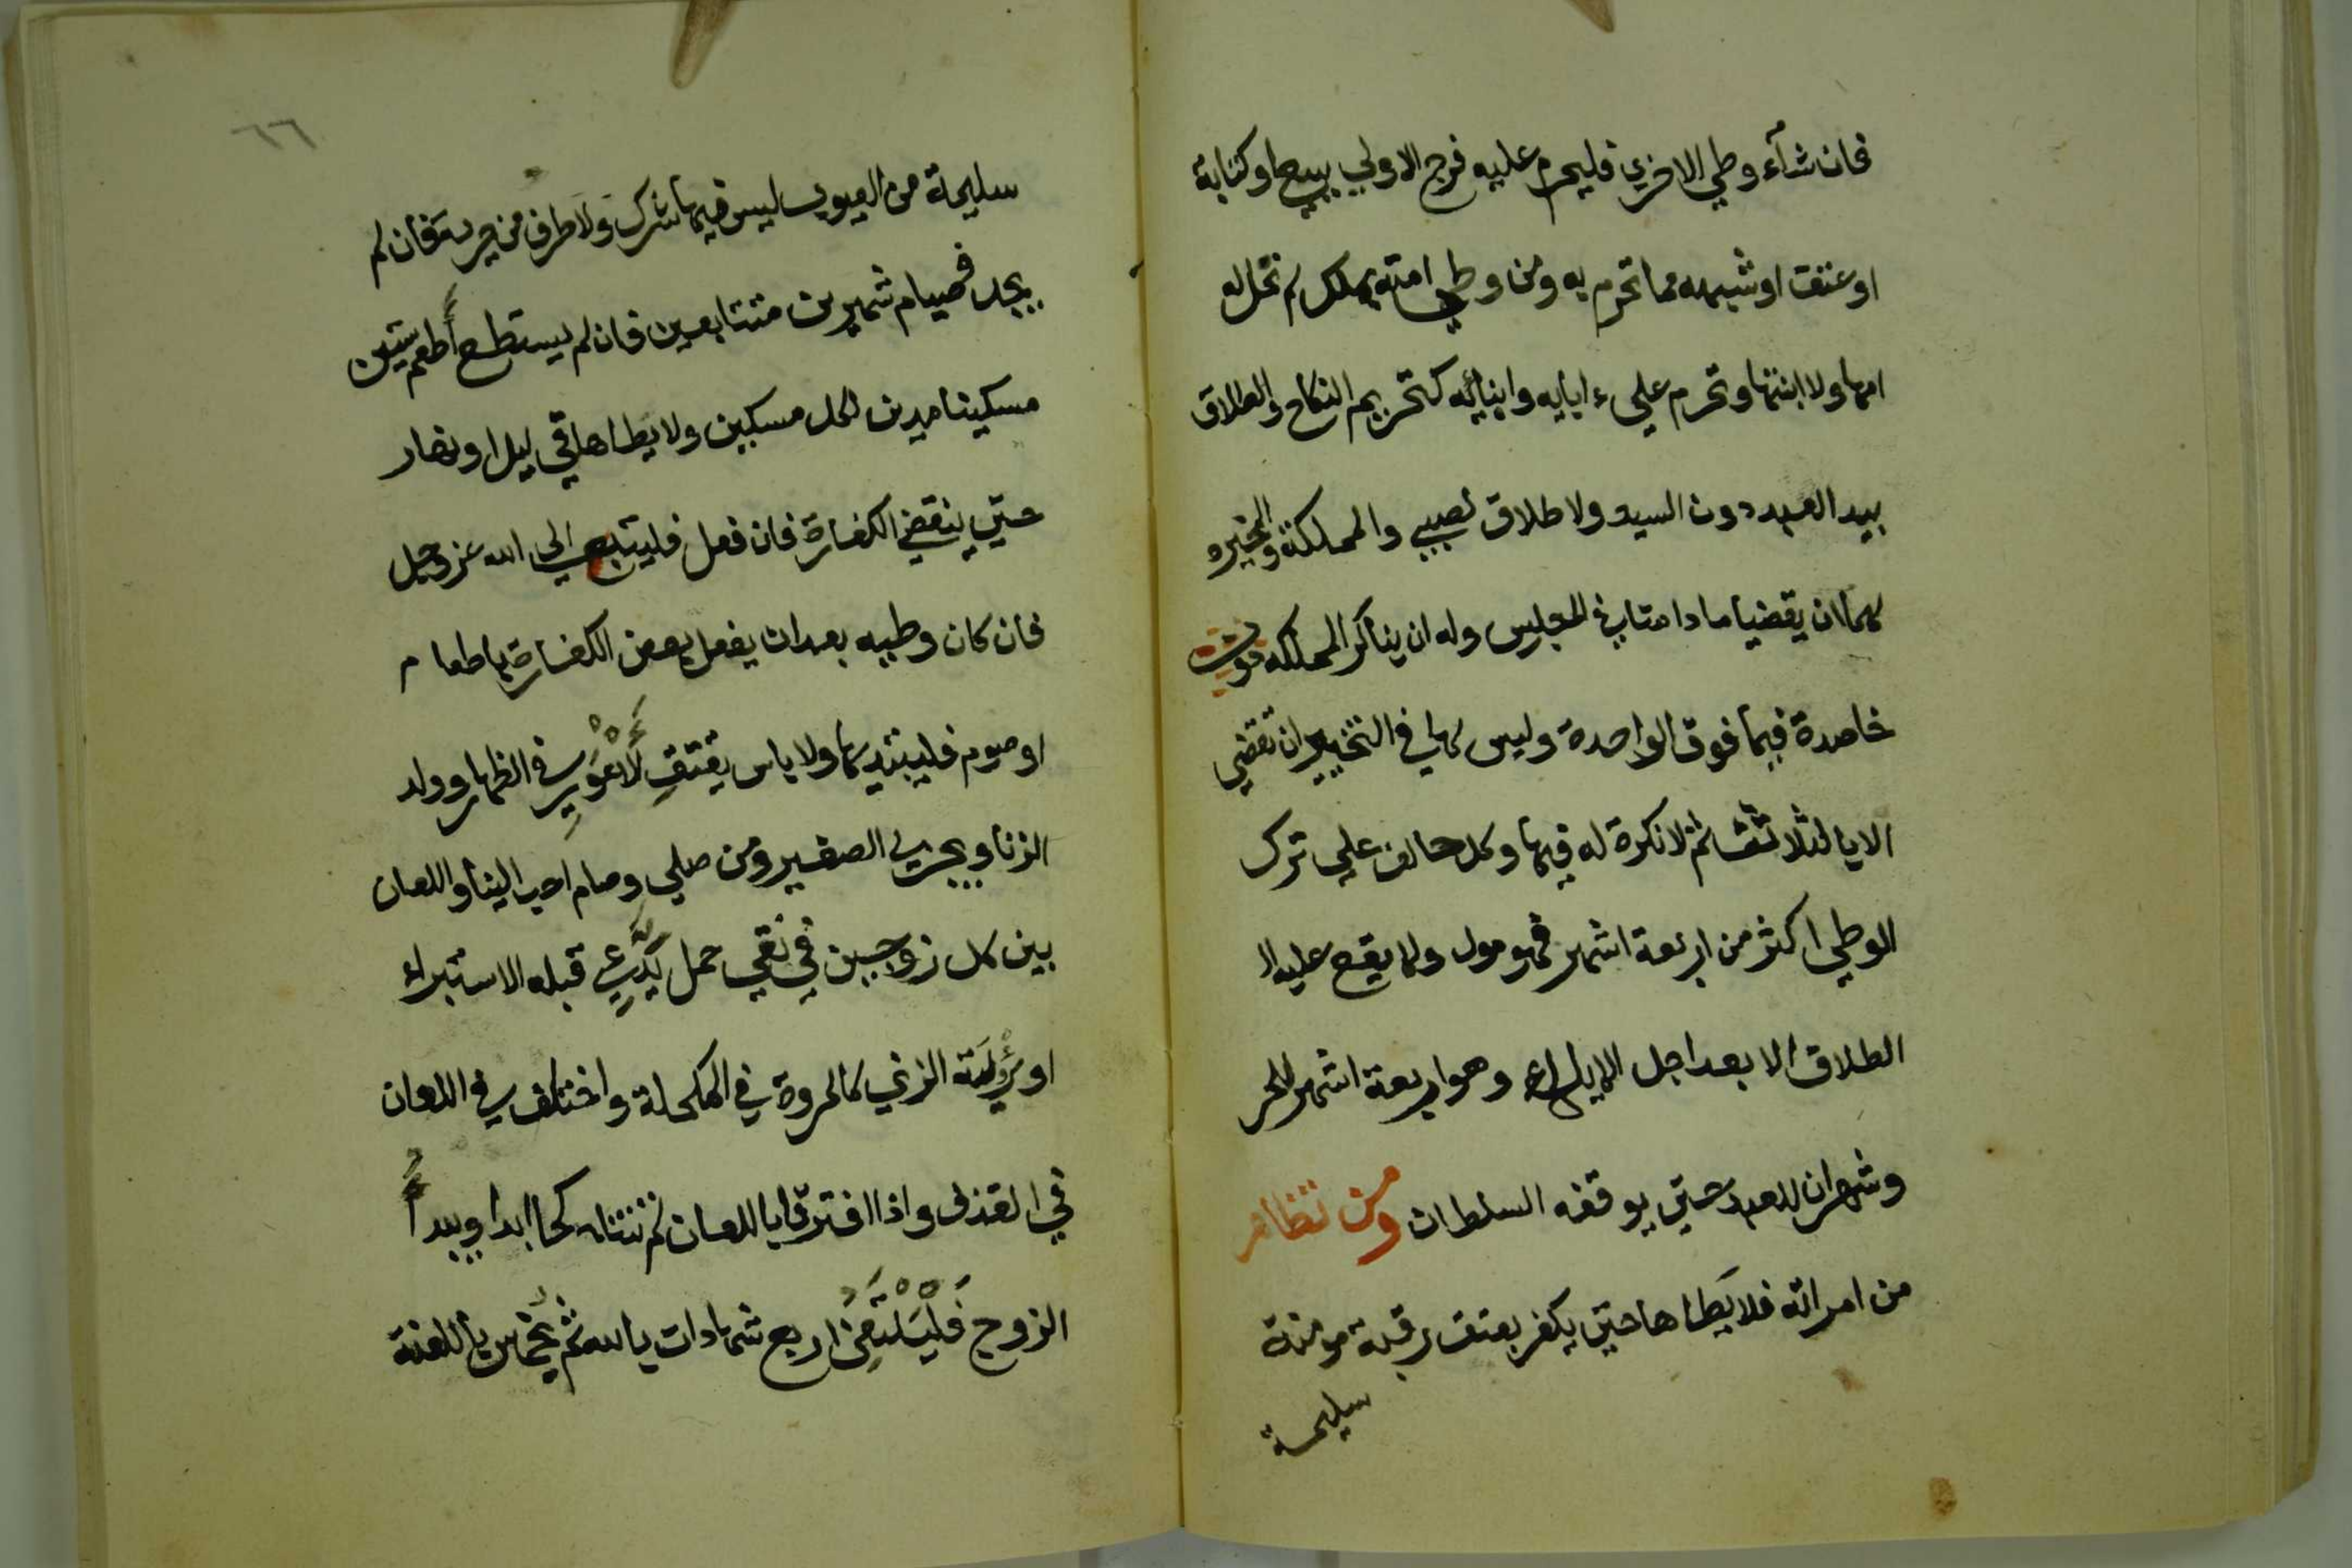 فان شآء وطي الاخري فليحرم عليه فرج الاولي ببيع او كتابة
او عتق او شبهه مما تحرم به ومن وطي امته بملك لم تحل له
امها ولا ابنتها وتحرم علي ءابايه وابنائه كتحريم النكاح والطلاق
بيد العبد دون السيد ولا طلاق لصبي والمملكة والمخيره
لهما ان يقضيا ما دامتا في المجلس وله ان يناكر المملكه
خاصة فيما فوق الواحدة وليس لها في التخيير ان تقضي
الا بالثلاث ثم لا نكرة له فيها وكل حالف علي ترك
الوطي اكثر من اربعة اشهر فهو مول ولا يقع عليه
الطلاق الا بعد اجل الايلاء وهو اربعة اشهر للحر
وشهران للعبد حتي يوقفه السلطان ومن تظاهر
من امراته فلا يطاها حتي يكفر بعتق رقبة مومنة
سليمة
٦٦
سليمة من العيوب ليس فيها شرك ولا طرف من حرية فان لم
يجد فصيام شهرين متتابعين فان لم يستطع أطعم ستين
مسكينا مدين لكل مسكين ولا يطاها في ليل او نهار
حتي ينقضي الكفارة فان فعل فليتب الي الله عز وجل
فان كان وطيه بعد ان يفعل بعض الكفارة باطعام
او صوم فليبتديها ولا باس بعتق الأعور في الظهار وولد
الزنا ويجزي الصغير ومن صلي وصام احب الينا واللعان
بين كل زوجين في نفي حمل يدعي قبله الاستبراء
او رؤية الزني كالمرود في المكحلة واختلف في اللعان
في القذف واذا افترقا باللعان لم يتناكحا ابدا ويبدأ
الزوج فليلتعن اربع شهادات بالله ثم يخمس باللعنة